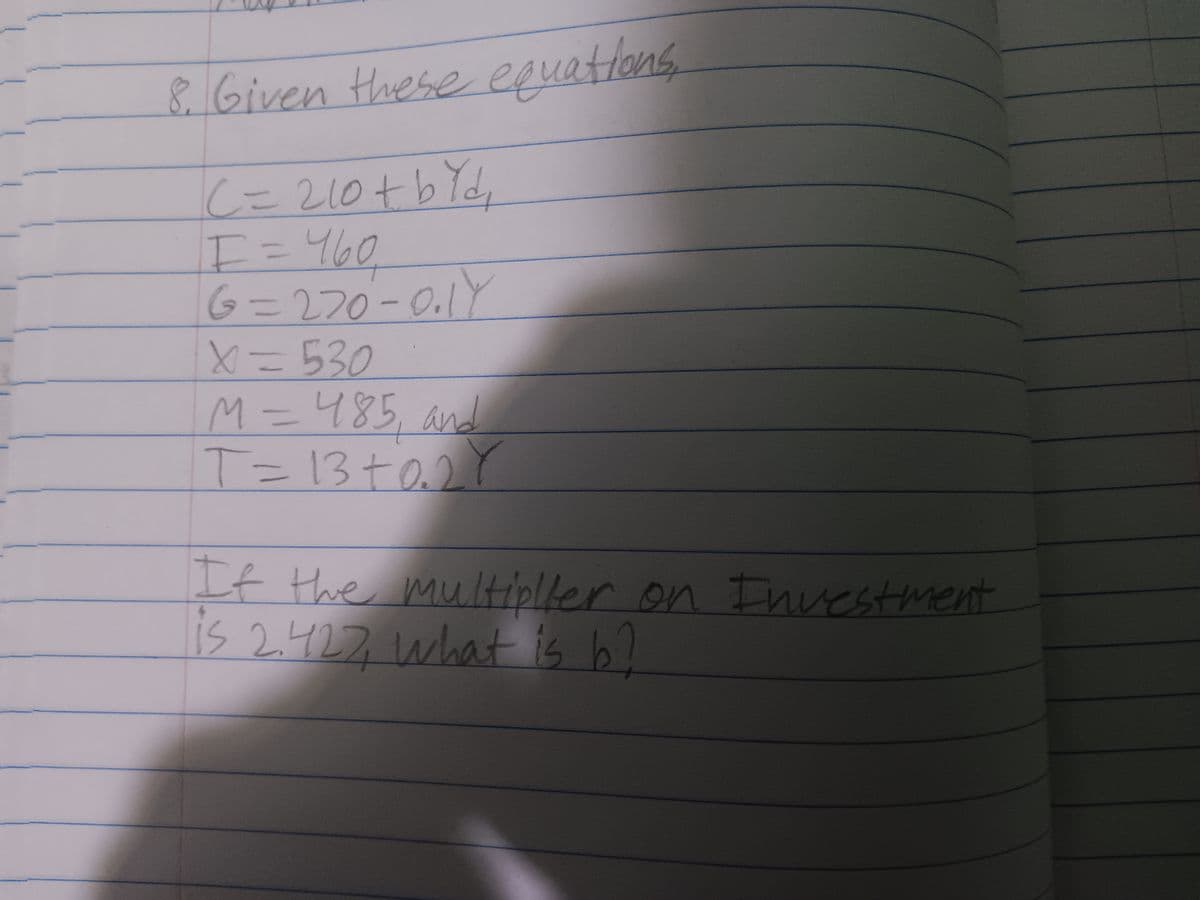 8. Given these equations,
C = 210 + bYd,
I = 460,
G = 270 - 0.1Y
X = 530
M = 485, and
T = 13 + 0.2Y
If the multiplier on Investment
is 2.427, what is b?